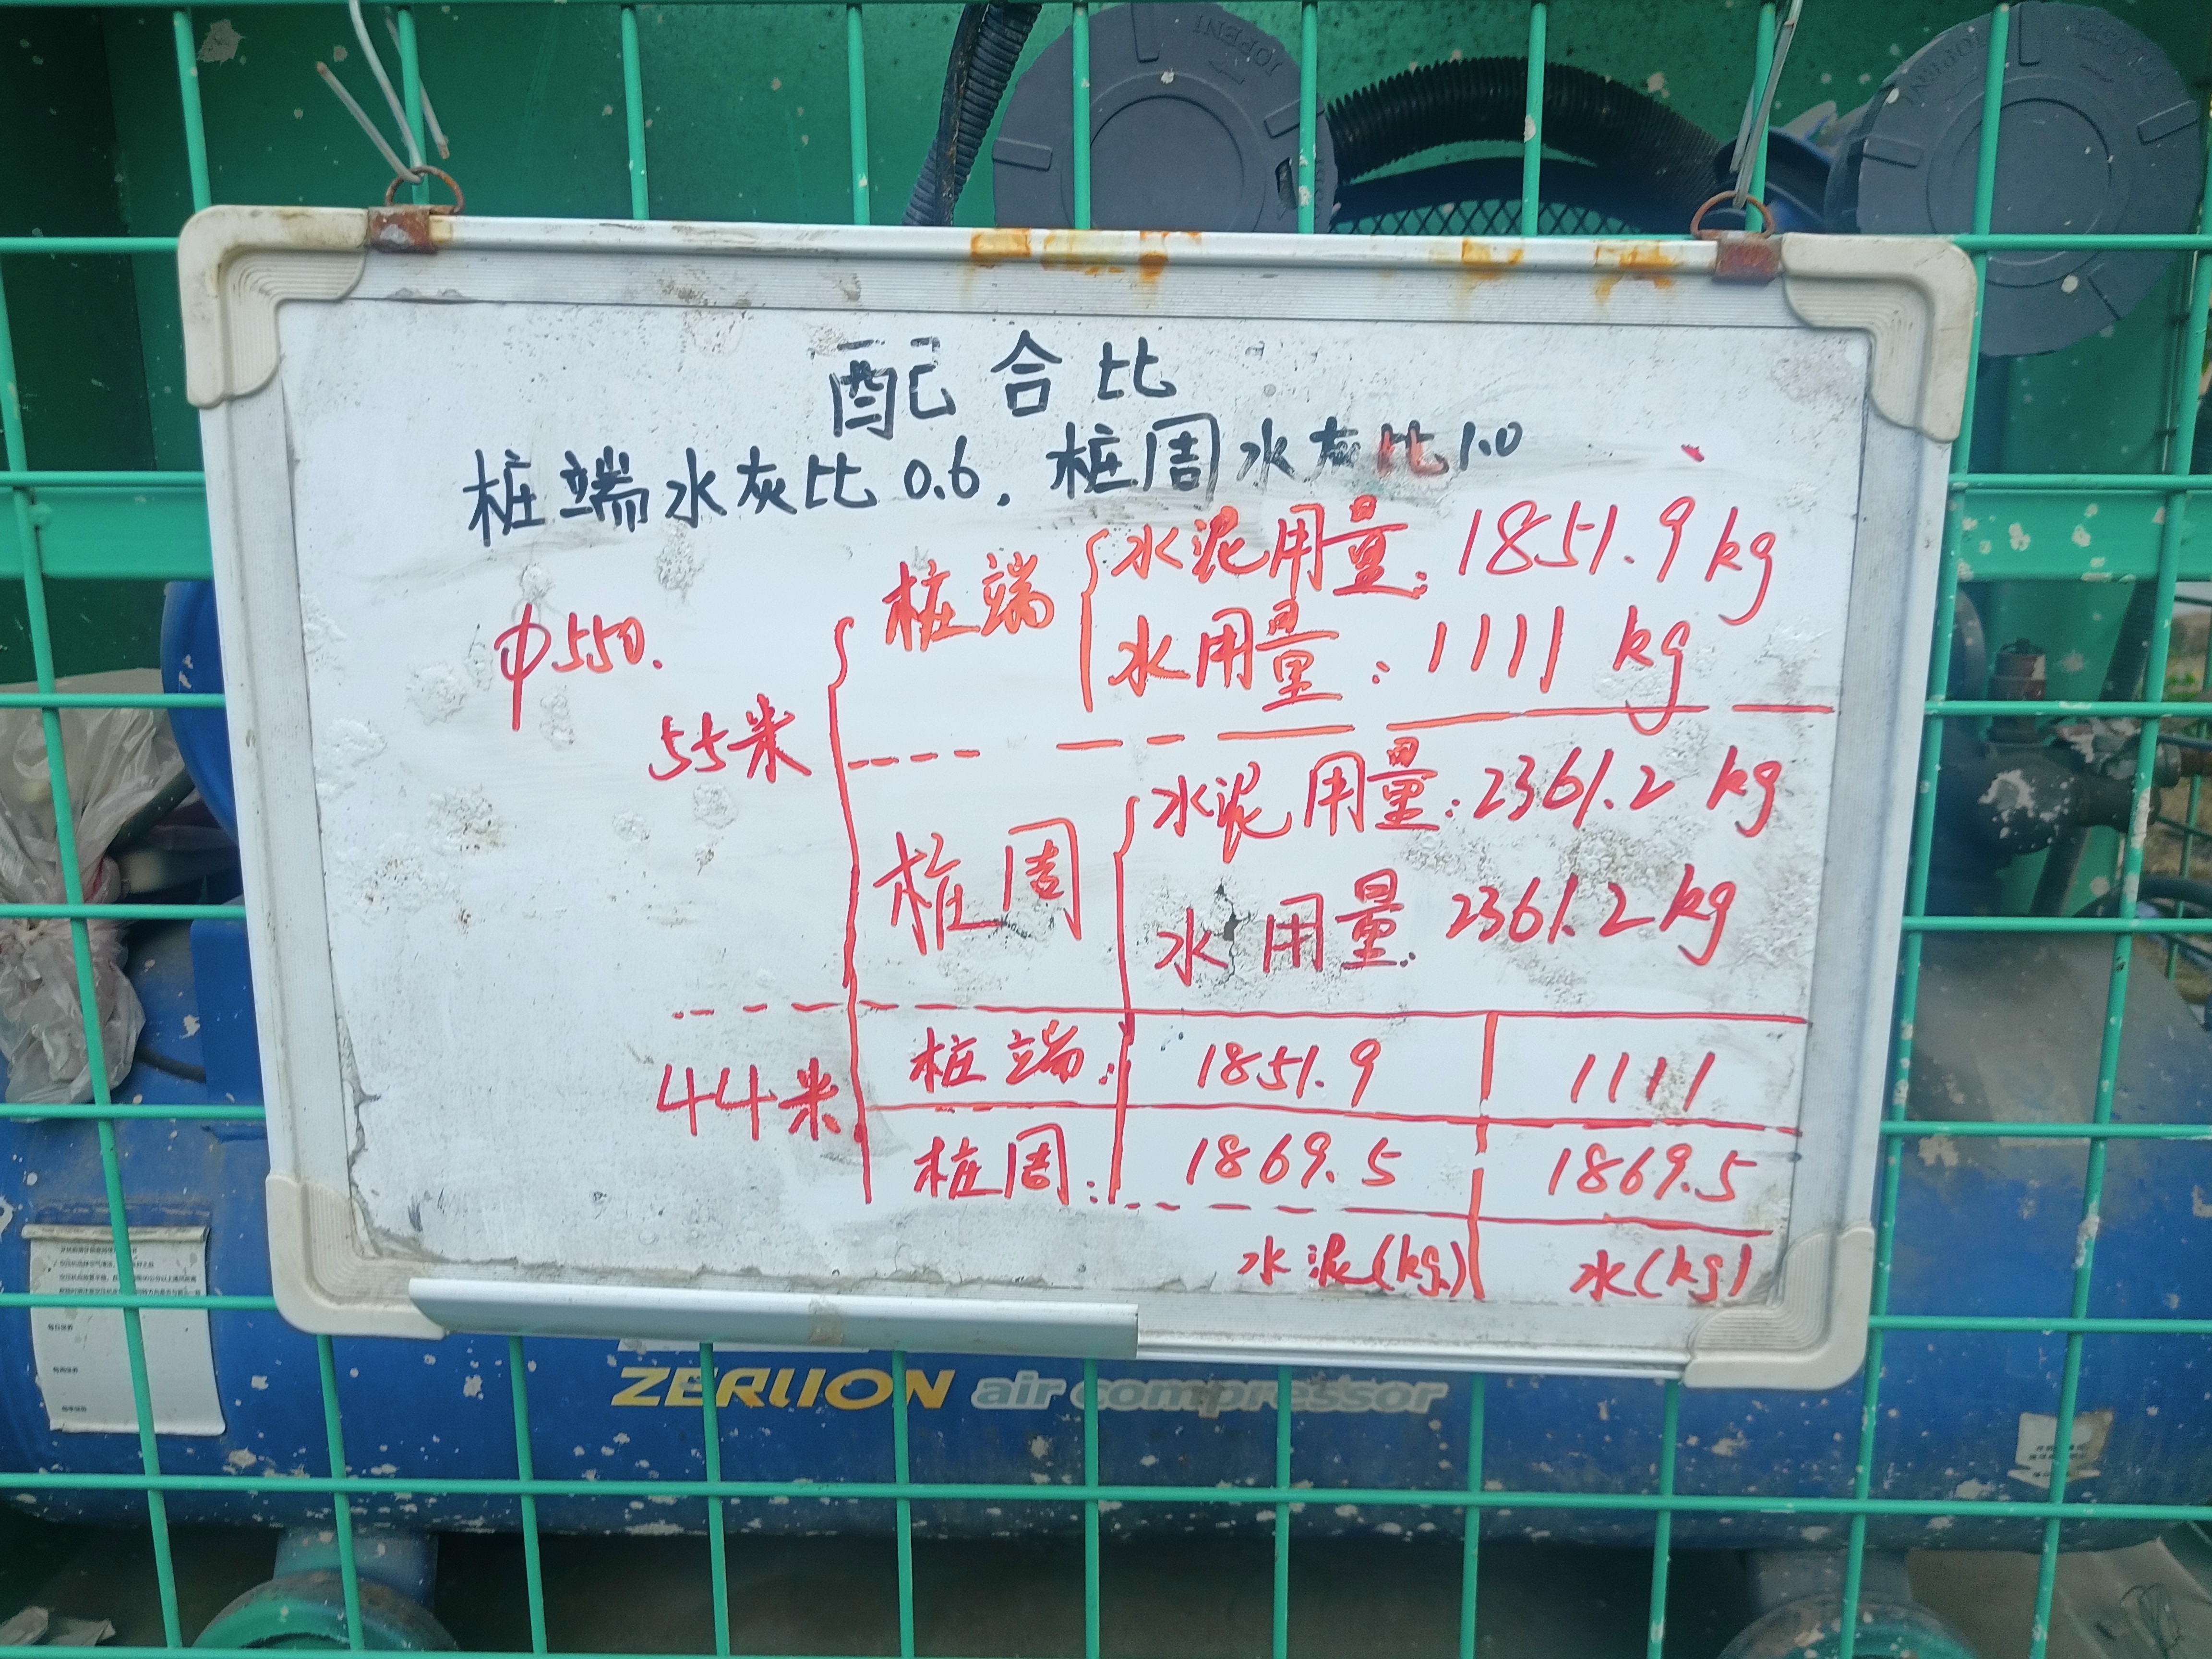 配合比
桩端水灰比 0.6. 桩周水灰比1.0
φ550.
55米
桩端
水泥用量: 1851.9 kg
水用量: 1111 kg
桩周
水泥用量: 2361.2 kg
水用量: 2361.2 kg
44米
桩端: 1851.9 1111
桩周: 1869.5 1869.5
水泥(kg) 水(kg)
ZERLION air compressor